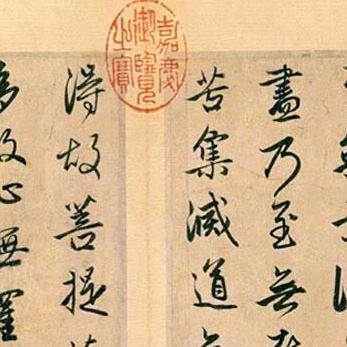 盡乃至無
苦集滅道
嘉慶御覽之寶
得故菩提
多故心無罣